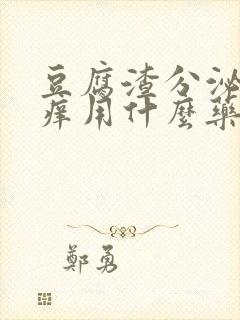 豆腐渣分泌
痒用什麼藥
鄭勇